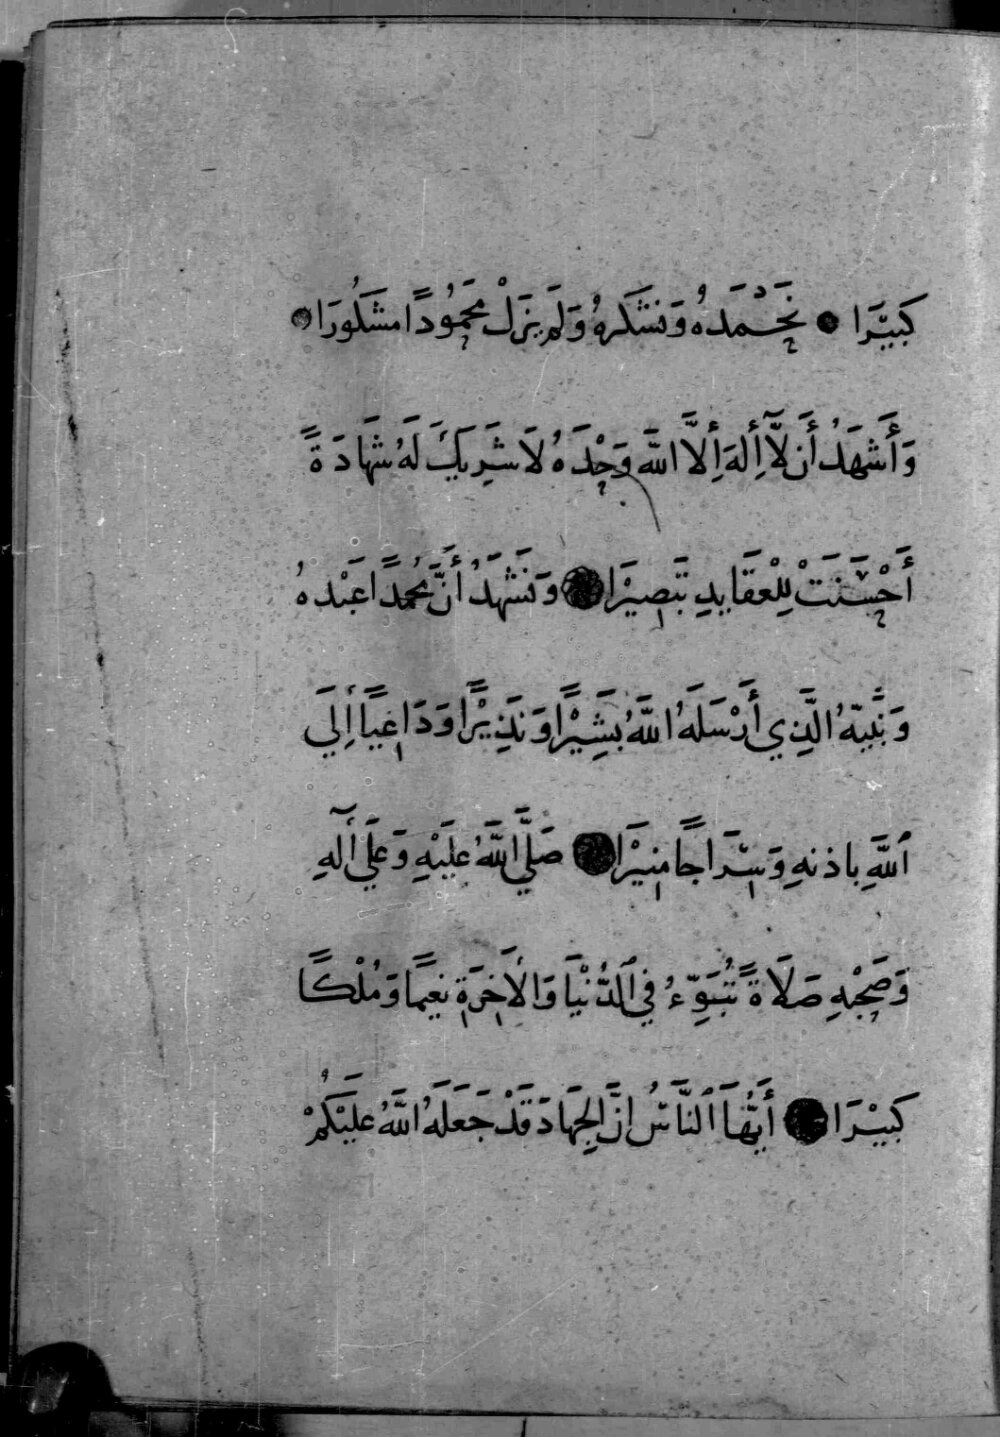 كَبِيْرَا ● نَحْمَدُهُ وَنَشْكُرهُ وَلَمْ يَزَلْ مَحْمُودًا مَشْكُورَا ●
وَأَشْهَدُ أَن لَّآ أِلَهَ أِلاَّ اللَّهَ وَحْدَهُ لاَ شَرِيكَ لَهُ شَهَادَةً
أَحْسَنَتْ لِلْعَقَايدِ تَبَصِيْرَا ● وَنَشْهَدُ أَنَّ مُحَمَّدًا عَبْدهُ
وَنَبِّيهُ الَّذِي أَرْسَلَهُ اللَّهُ بَشِيْرًا وَنَذِيْرًا وَدَاعِيًا أِلَي
ٱللَّهِ باذنهِ وَسِرَاجًا مِنِيْرَا ● صَلَّي اللَّهُ عَلَيْهِ وَعَلَي أٓلهِ
وَصَحْبِهِ صَلَاةً تُبَوِّءُ فِي ٱلدُّنْيَا وَالأَخِرَةِ نَعِيمًا وَمُلْكًا
كَبِيْرَا ● أَيُّهَا ٱلنَّاسُ انَّ الجِهَادَ قَدْ جَعَلَهُ اللَّهُ عَلَيْكُمْ